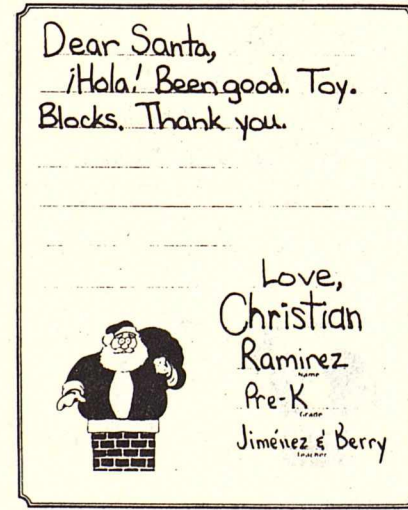 Dear Santa,
¡Hola! Been good. Toy.
Blocks. Thank you.
Love,
Christian
Ramirez
Name
Pre-K
Grade
Jiménez & Berry
Teacher